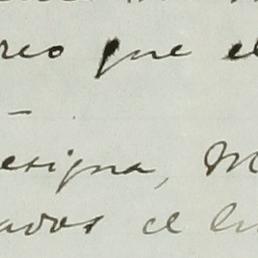 reo que el
esigna, M
ados el